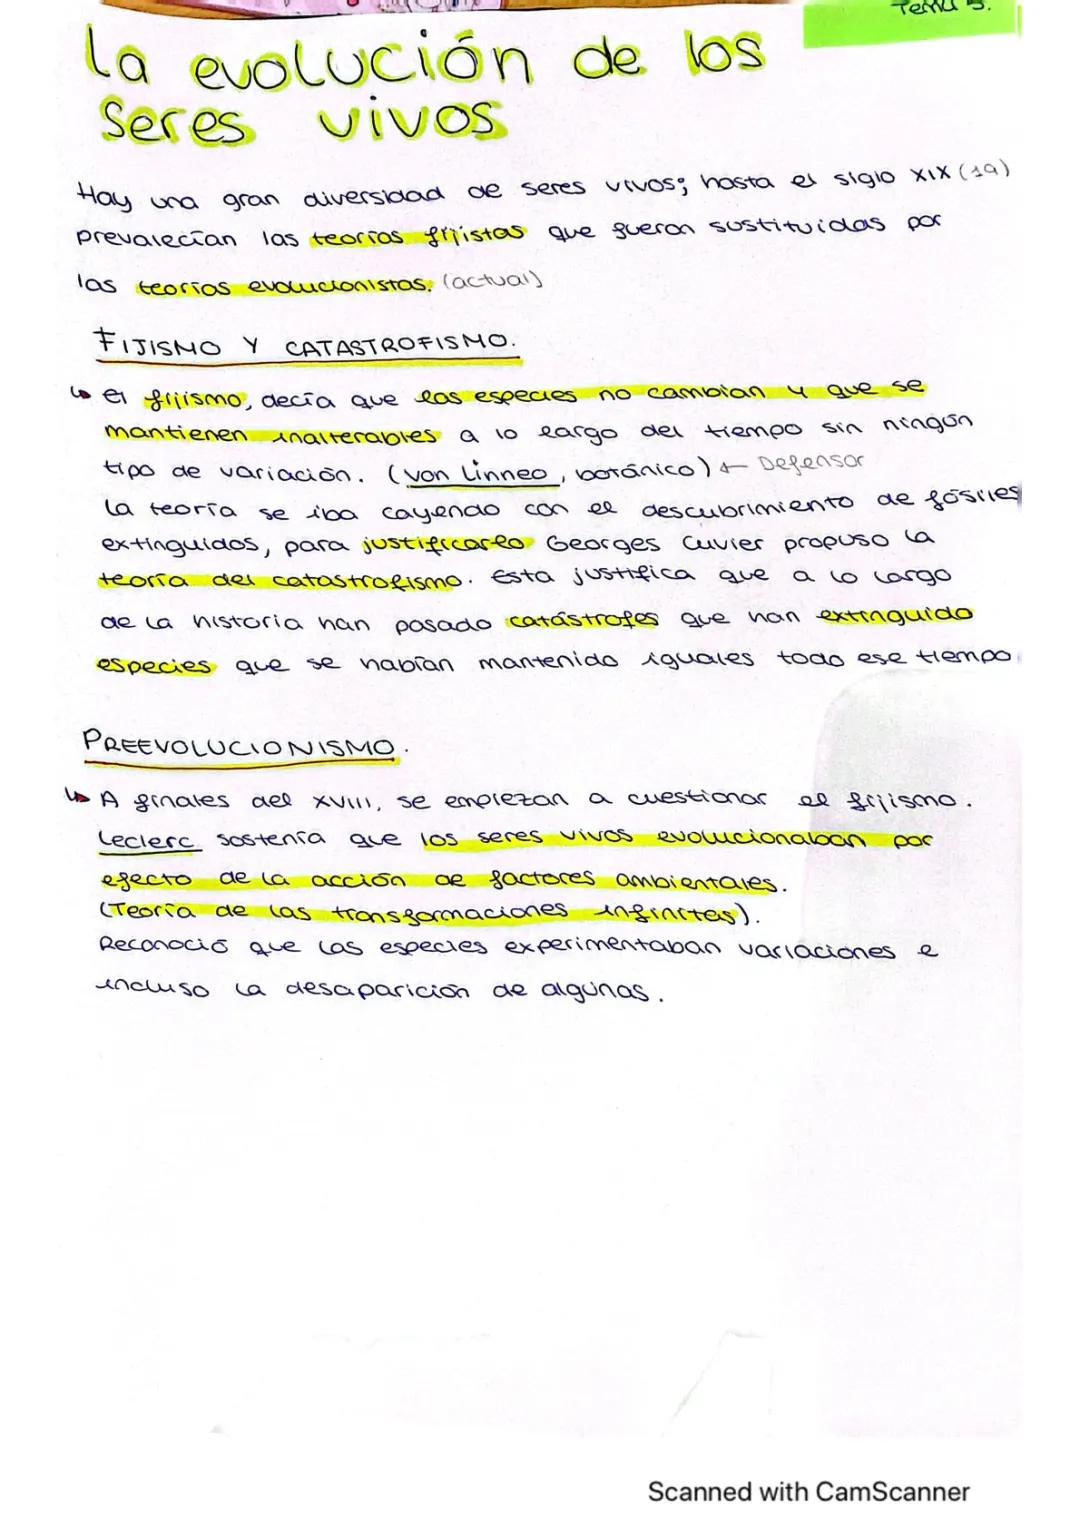 Tema 5.
La evolución de los
seres vivos
Hay una gran diversidad de seres vivos; hasta el siglo XIX (19)
prevalecían las teorías fijistas que fueron sustituidas por
las teorías evolucionistas. (actual)
FIJISMO Y CATASTROFISMO.
El fijismo, decía que las especies no cambian y que se
mantienen inalterables a lo largo del tiempo sin ningún
tipo de variación. (von Linneo, botánico) ← Defensor
La teoría se iba cayendo con el descubrimiento de fósiles
extinguidos, para justificarlo Georges Cuvier propuso la
teoría del catastrofismo. Esta justifica que a lo largo
de la historia han pasado catástrofes que han extinguido
especies que se habían mantenido iguales todo ese tiempo
PREEVOLUCIONISMO.
A finales del XVIII, se empiezan a cuestionar el fijismo.
Leclerc sostenía que los seres vivos evolucionaban por
efecto de la acción de factores ambientales.
(Teoría de las transformaciones infinites).
Reconoció que las especies experimentaban variaciones e
incluso la desaparición de algunas.
Scanned with CamScanner